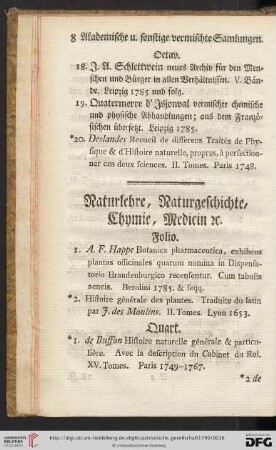 8 Akademische u. sonstige vermischte Samlungen.
Octav.
18. J. A. Schlettwein neues Archiv für den Men-
schen und Bürger in allen Verhältnissen. V. Bän-
de. Leipzig 1785 und folg.
19. Quatermerre d'Isjonval vermischte chemische
und physische Abhandlungen; aus dem Franzö-
sischen übersetzt. Leipzig 1785.
*20. Deslandes Recueil de differens Traités de Phy-
sique & d'Histoire naturelle, propres, à perfection-
ner ces deux sciences. II. Tomes. Paris 1748.
Naturlehre, Naturgeschichte,
Chymie, Medicin ꝛc.
Folio.
1. A. F. Happe Botanica pharmaceutica, exhibens
plantas officinales quarum nomina in Dispensa-
torio Brandenburgico recensentur. Cum tabulis
aeneis. Berolini 1785. & seqq.
*2. Histoire générale des plantes. Traduite du latin
par J. des Moulins. II. Tomes. Lyon 1653.
Quart.
*1. de Buffon Histoire naturelle générale & particu-
lière. Avec la description du Cabinet du Roi.
XV. Tomes. Paris 1749-1767.
*2 de
UNIVERSITÄTS-
BIBLIOTHEK
HEIDELBERG
http://digi.ub.uni-heidelberg.de/diglit/patriotische_gesellschaft1790/0016
© Universitätsbibliothek Heidelberg
gefördert durch die
DFG